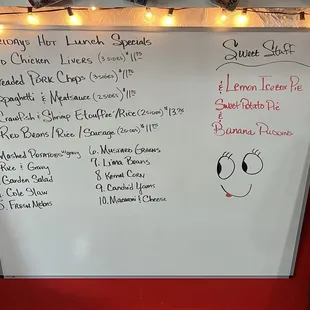 Fridays Hot Lunch Specials
Chicken Livers (3 sides) $11.75
Breaded Pork Chops (3 sides) $11.75
Spaghetti & Meatsauce (2 sides) $11.75
Crawfish & Shrimp Etouffee/Rice (2 sides) $13.75
Red Beans/Rice/Sausage (2 sides) $11.75
Mashed Potatoes w/gravy
Rice & Gravy
Garden Salad
Cole Slaw
5. Fresh Melons
6. Mustard Greens
7. Lima Beans
8. Kernel Corn
9. Candied Yams
10. Macaroni & Cheese
Sweet Stuff
Lemon Icebox Pie
Sweet Potato Pie
&
Banana Pudding